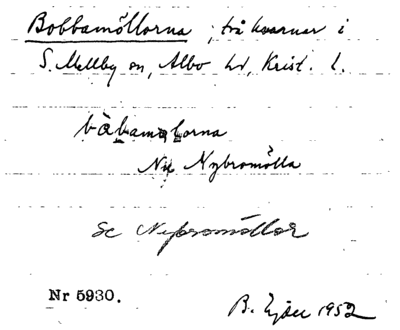 Bobbamöllorna, två kvarnar i
S. Mellby sn, Albo hd, Krist. l.
båbamølorna
Nu Nybromölla
Se Nybromöllor
Nr 5930.
B. Ejder 1952